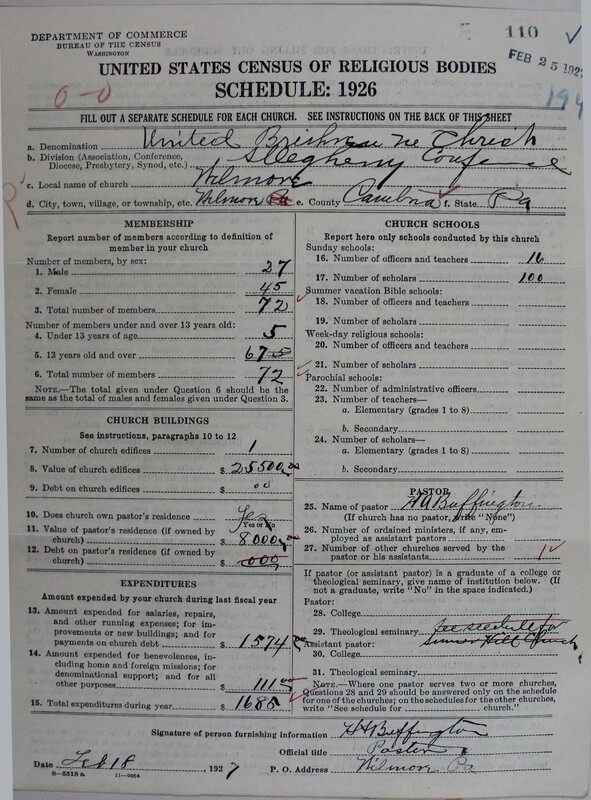 DEPARTMENT OF COMMERCE
BUREAU OF THE CENSUS
WASHINGTON
110
FEB 25 192
UNITED STATES CENSUS OF RELIGIOUS BODIES
SCHEDULE: 1926
0-0
194
FILL OUT A SEPARATE SCHEDULE FOR EACH CHURCH. SEE INSTRUCTIONS ON THE BACK OF THIS SHEET
a. Denomination United Brethren in Christ
b. Division (Association, Conference, Diocese, Presbytery, Synod, etc.) Allegheny Conference
c. Local name of church Wilmore
d. City, town, village, or township, etc. Wilmore Pa e. County Cambria f. State Pa
MEMBERSHIP
Report number of members according to definition of member in your church
Number of members, by sex:
1. Male 27
2. Female 45
3. Total number of members 72
Number of members under and over 13 years old:
4. Under 13 years of age 5
5. 13 years old and over 67
6. Total number of members 72
NOTE.—The total given under Question 6 should be the same as the total of males and females given under Question 3.
CHURCH BUILDINGS
See instructions, paragraphs 10 to 12
7. Number of church edifices 1
8. Value of church edifices $ 25500.00
9. Debt on church edifices $ 00
10. Does church own pastor's residence Yes
Yes or No
11. Value of pastor's residence (if owned by church) $ 8000.00
12. Debt on pastor's residence (if owned by church) $ 000
EXPENDITURES
Amount expended by your church during last fiscal year
13. Amount expended for salaries, repairs, and other running expenses; for improvements or new buildings; and for payments on church debt $ 1574
14. Amount expended for benevolences, including home and foreign missions; for denominational support; and for all other purposes $ 111
15. Total expenditures during year $ 1685
CHURCH SCHOOLS
Report here only schools conducted by this church
Sunday schools:
16. Number of officers and teachers 16
17. Number of scholars 100
Summer vacation Bible schools:
18. Number of officers and teachers
19. Number of scholars
Week-day religious schools:
20. Number of officers and teachers
21. Number of scholars
Parochial schools:
22. Number of administrative officers
23. Number of teachers—
a. Elementary (grades 1 to 8)
b. Secondary
24. Number of scholars—
a. Elementary (grades 1 to 8)
b. Secondary
PASTOR
25. Name of pastor Buffington
(If church has no pastor, write "None")
26. Number of ordained ministers, if any, employed as assistant pastors
27. Number of other churches served by the pastor or his assistants 1
If pastor (or assistant pastor) is a graduate of a college or theological seminary, give name of institution below. (If not a graduate, write "No" in the space indicated.)
Pastor:
28. College
29. Theological seminary see schedule for
Assistant pastor: Summer Hill Church
30. College
31. Theological seminary
NOTE.—Where one pastor serves two or more churches, Questions 28 and 29 should be answered only on the schedule for one of the churches; on the schedules for the other churches, write "See schedule for church."
Signature of person furnishing information Buffington
Official title Pastor
Date Feb 18, 1927 P. O. Address Wilmore Pa
8-5518 a 11-9064